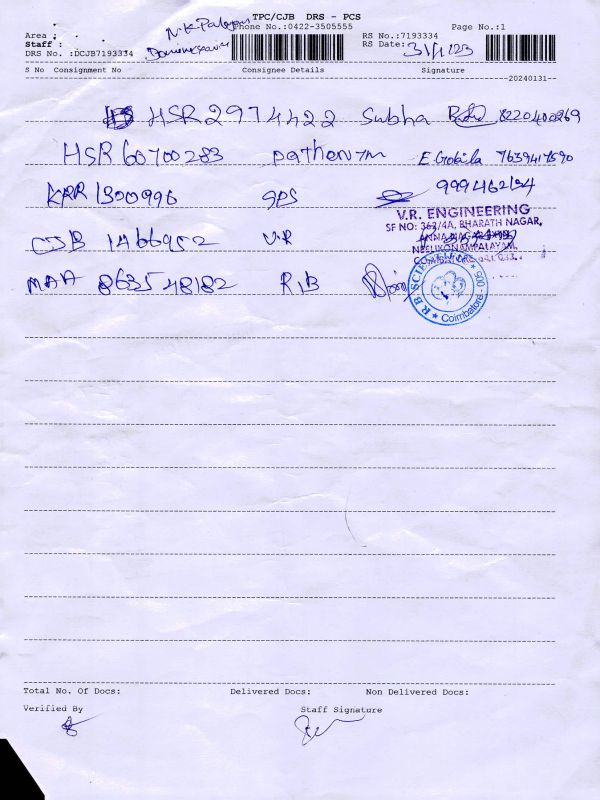 TPC/CJB DRS - PCS
Phone No.:0422-3505555 Page No.:1
Area : N.K. Palayam RS No.:7193334
Staff : RS Date: 31/1/23
DRS No. :DCJB7193334
S No Consignment No Consignee Details Signature
20240131--
HSR 2974422 Subha 8220400269
HSR 60700283 E Gokila 7639417590
KRR 1300996 GPS 999462194
V.R. ENGINEERING
SF NO: 362/4A, BHARATH NAGAR,
ANNA NAGAR
NEELIKONAMPALAYAM,
CJB 1466952 V.R
MAA 863548182 R,B
R B Coimbatore - 005
Total No. Of Docs: Delivered Docs: Non Delivered Docs:
Verified By Staff Signature